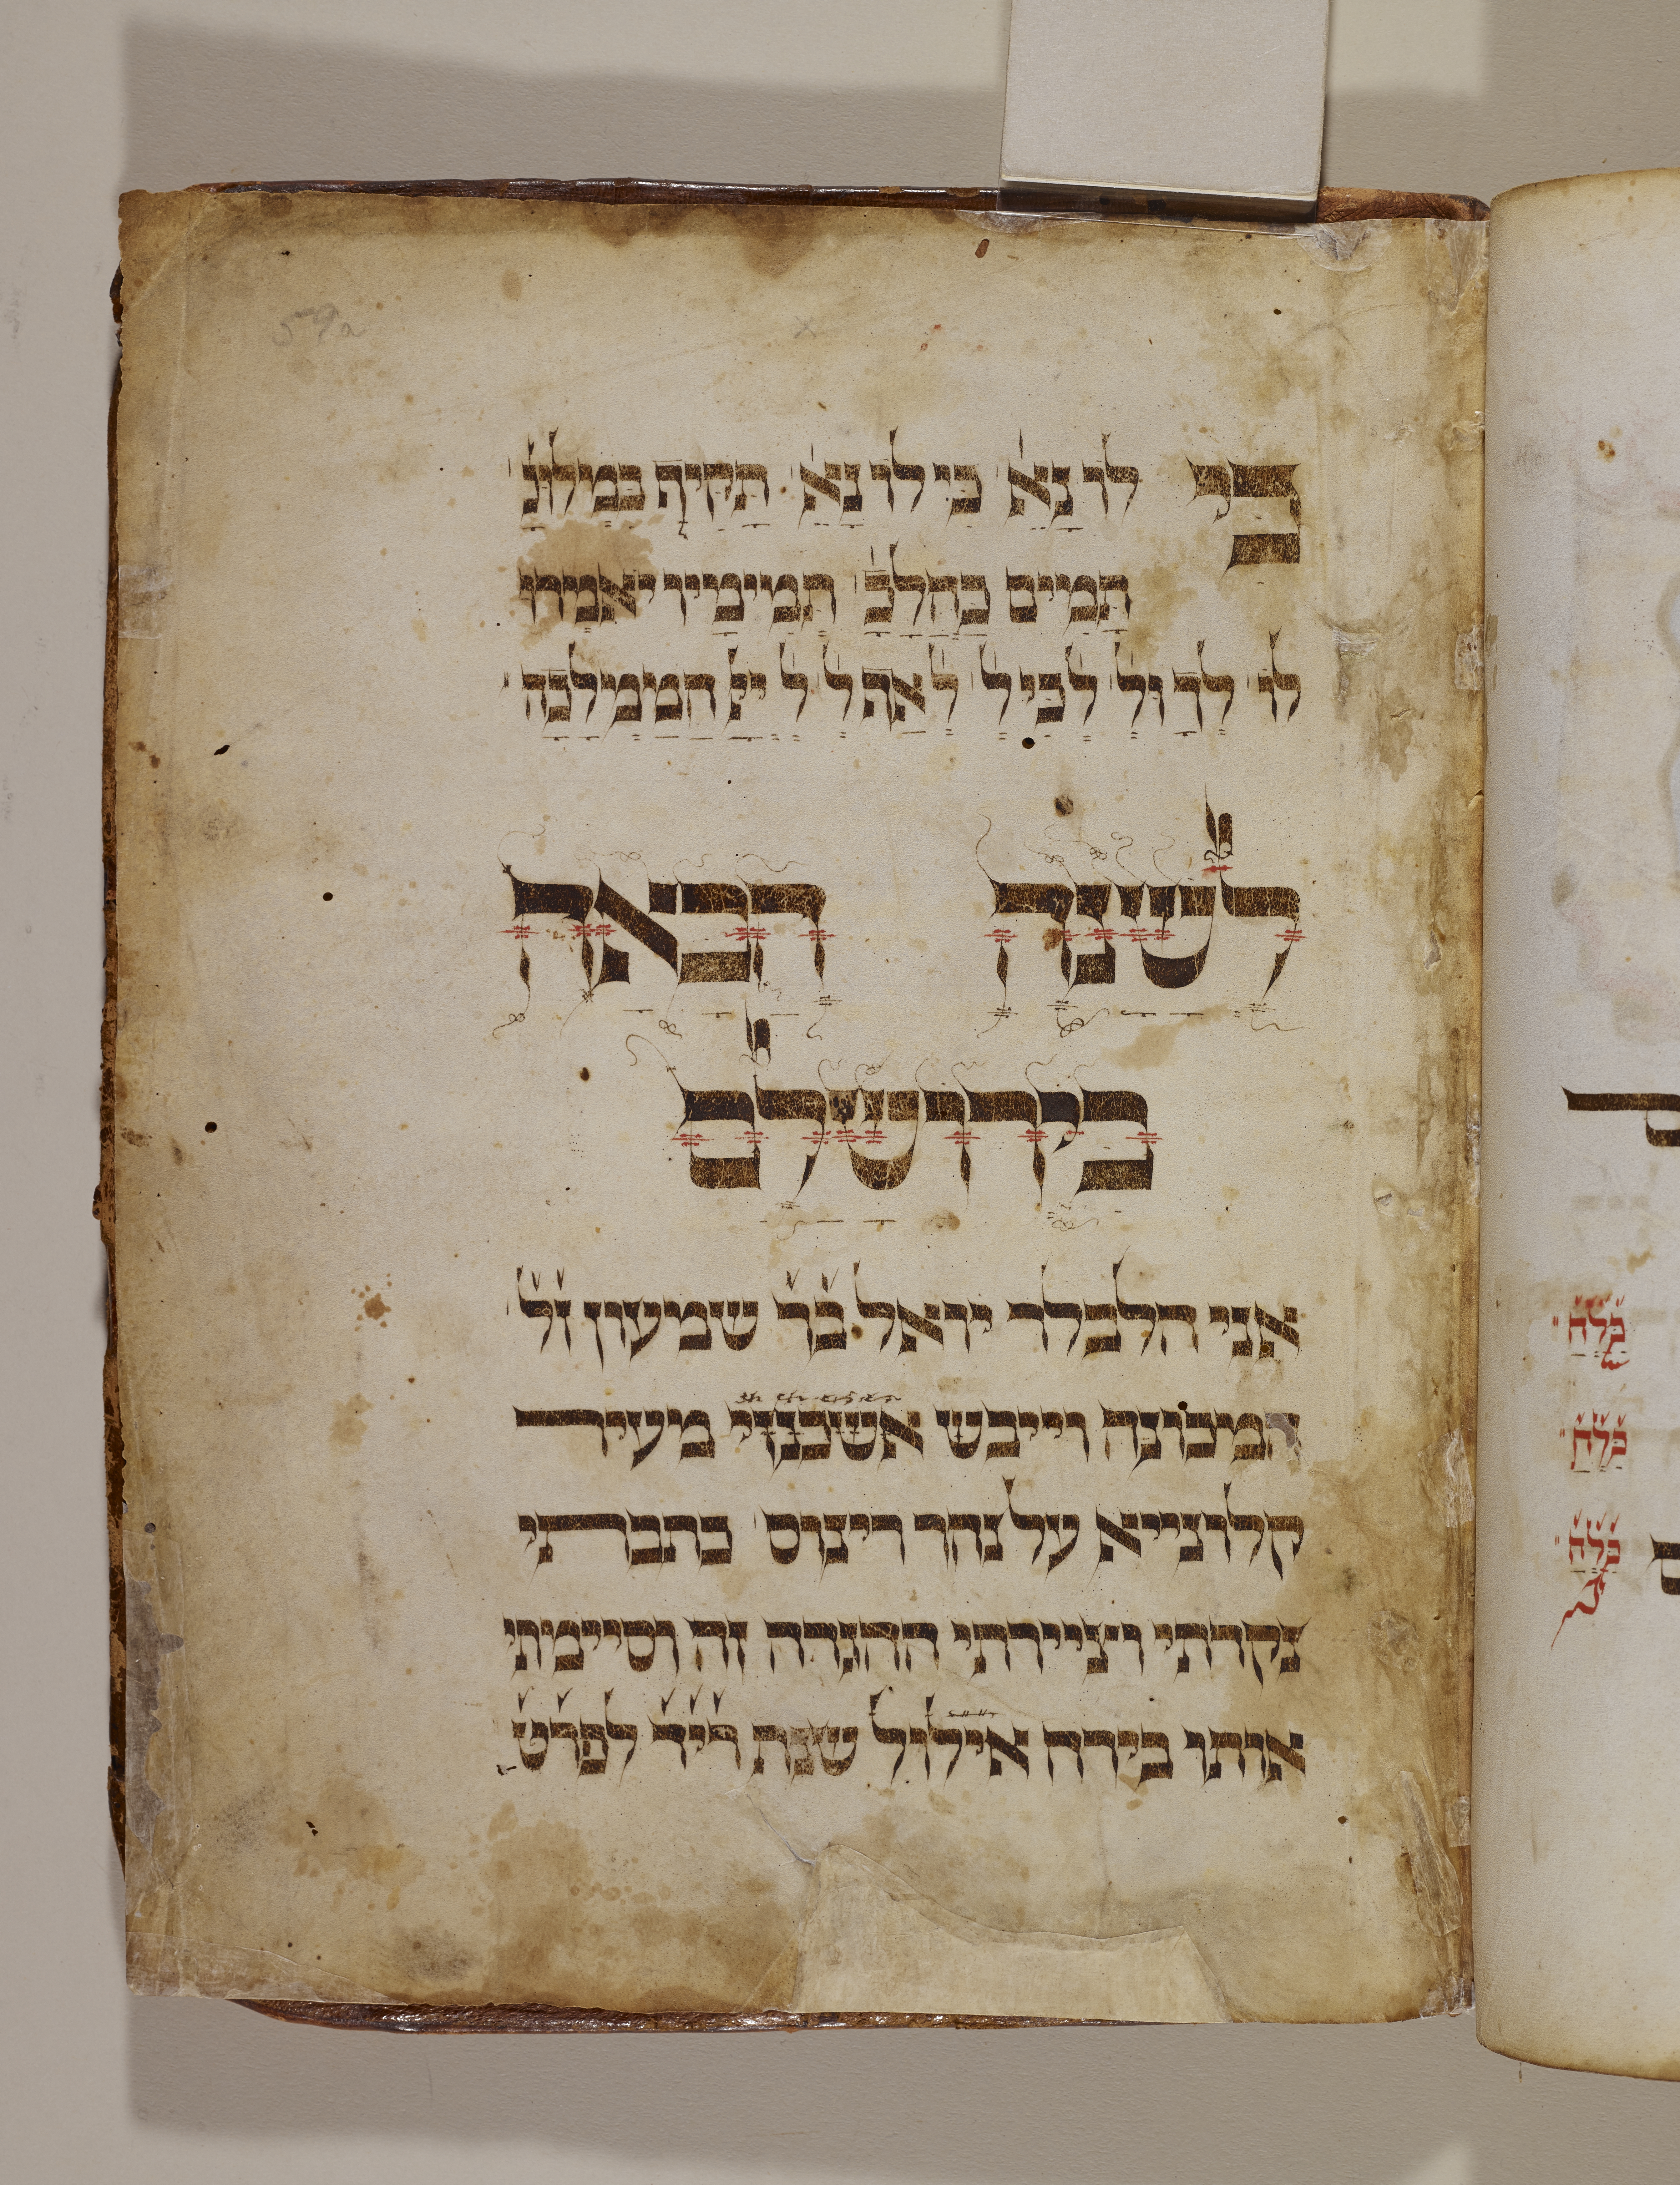 כי לו נאה כי לו נאה תקיף במלוכ׳
תמים כהלכ׳ תמימיו יאמרו
לו לך ול׳ לך כי ל׳ לך אף ל׳ ל׳ יי׳ הממלכה
לשנה הבאה
בירושלם
אני הלבלר יואל ב֞ר֞ שמעון ז֞ל֞
המכונה וייבש אשכנזי מעיר
קלוניייא על נהר רינוס כתבתי
נקדתי וציירתי ההגדה זה וסיימתי
אותו בירח אילול שנת ר֞י֞ד֞ לפרט
כ֞ל֞ה֞
כ֞ל֞ה֞
כ֞ל֞ה֞